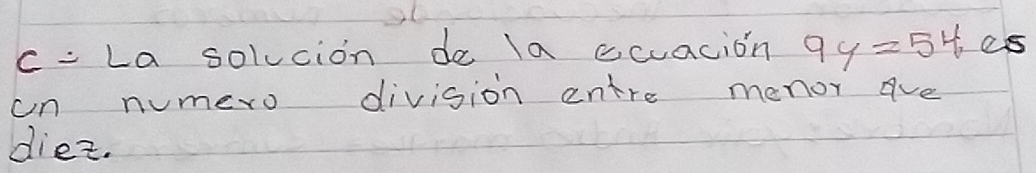 c = La solución de la ecuación 9y = 54 es
un numero división entre menor que
diez.